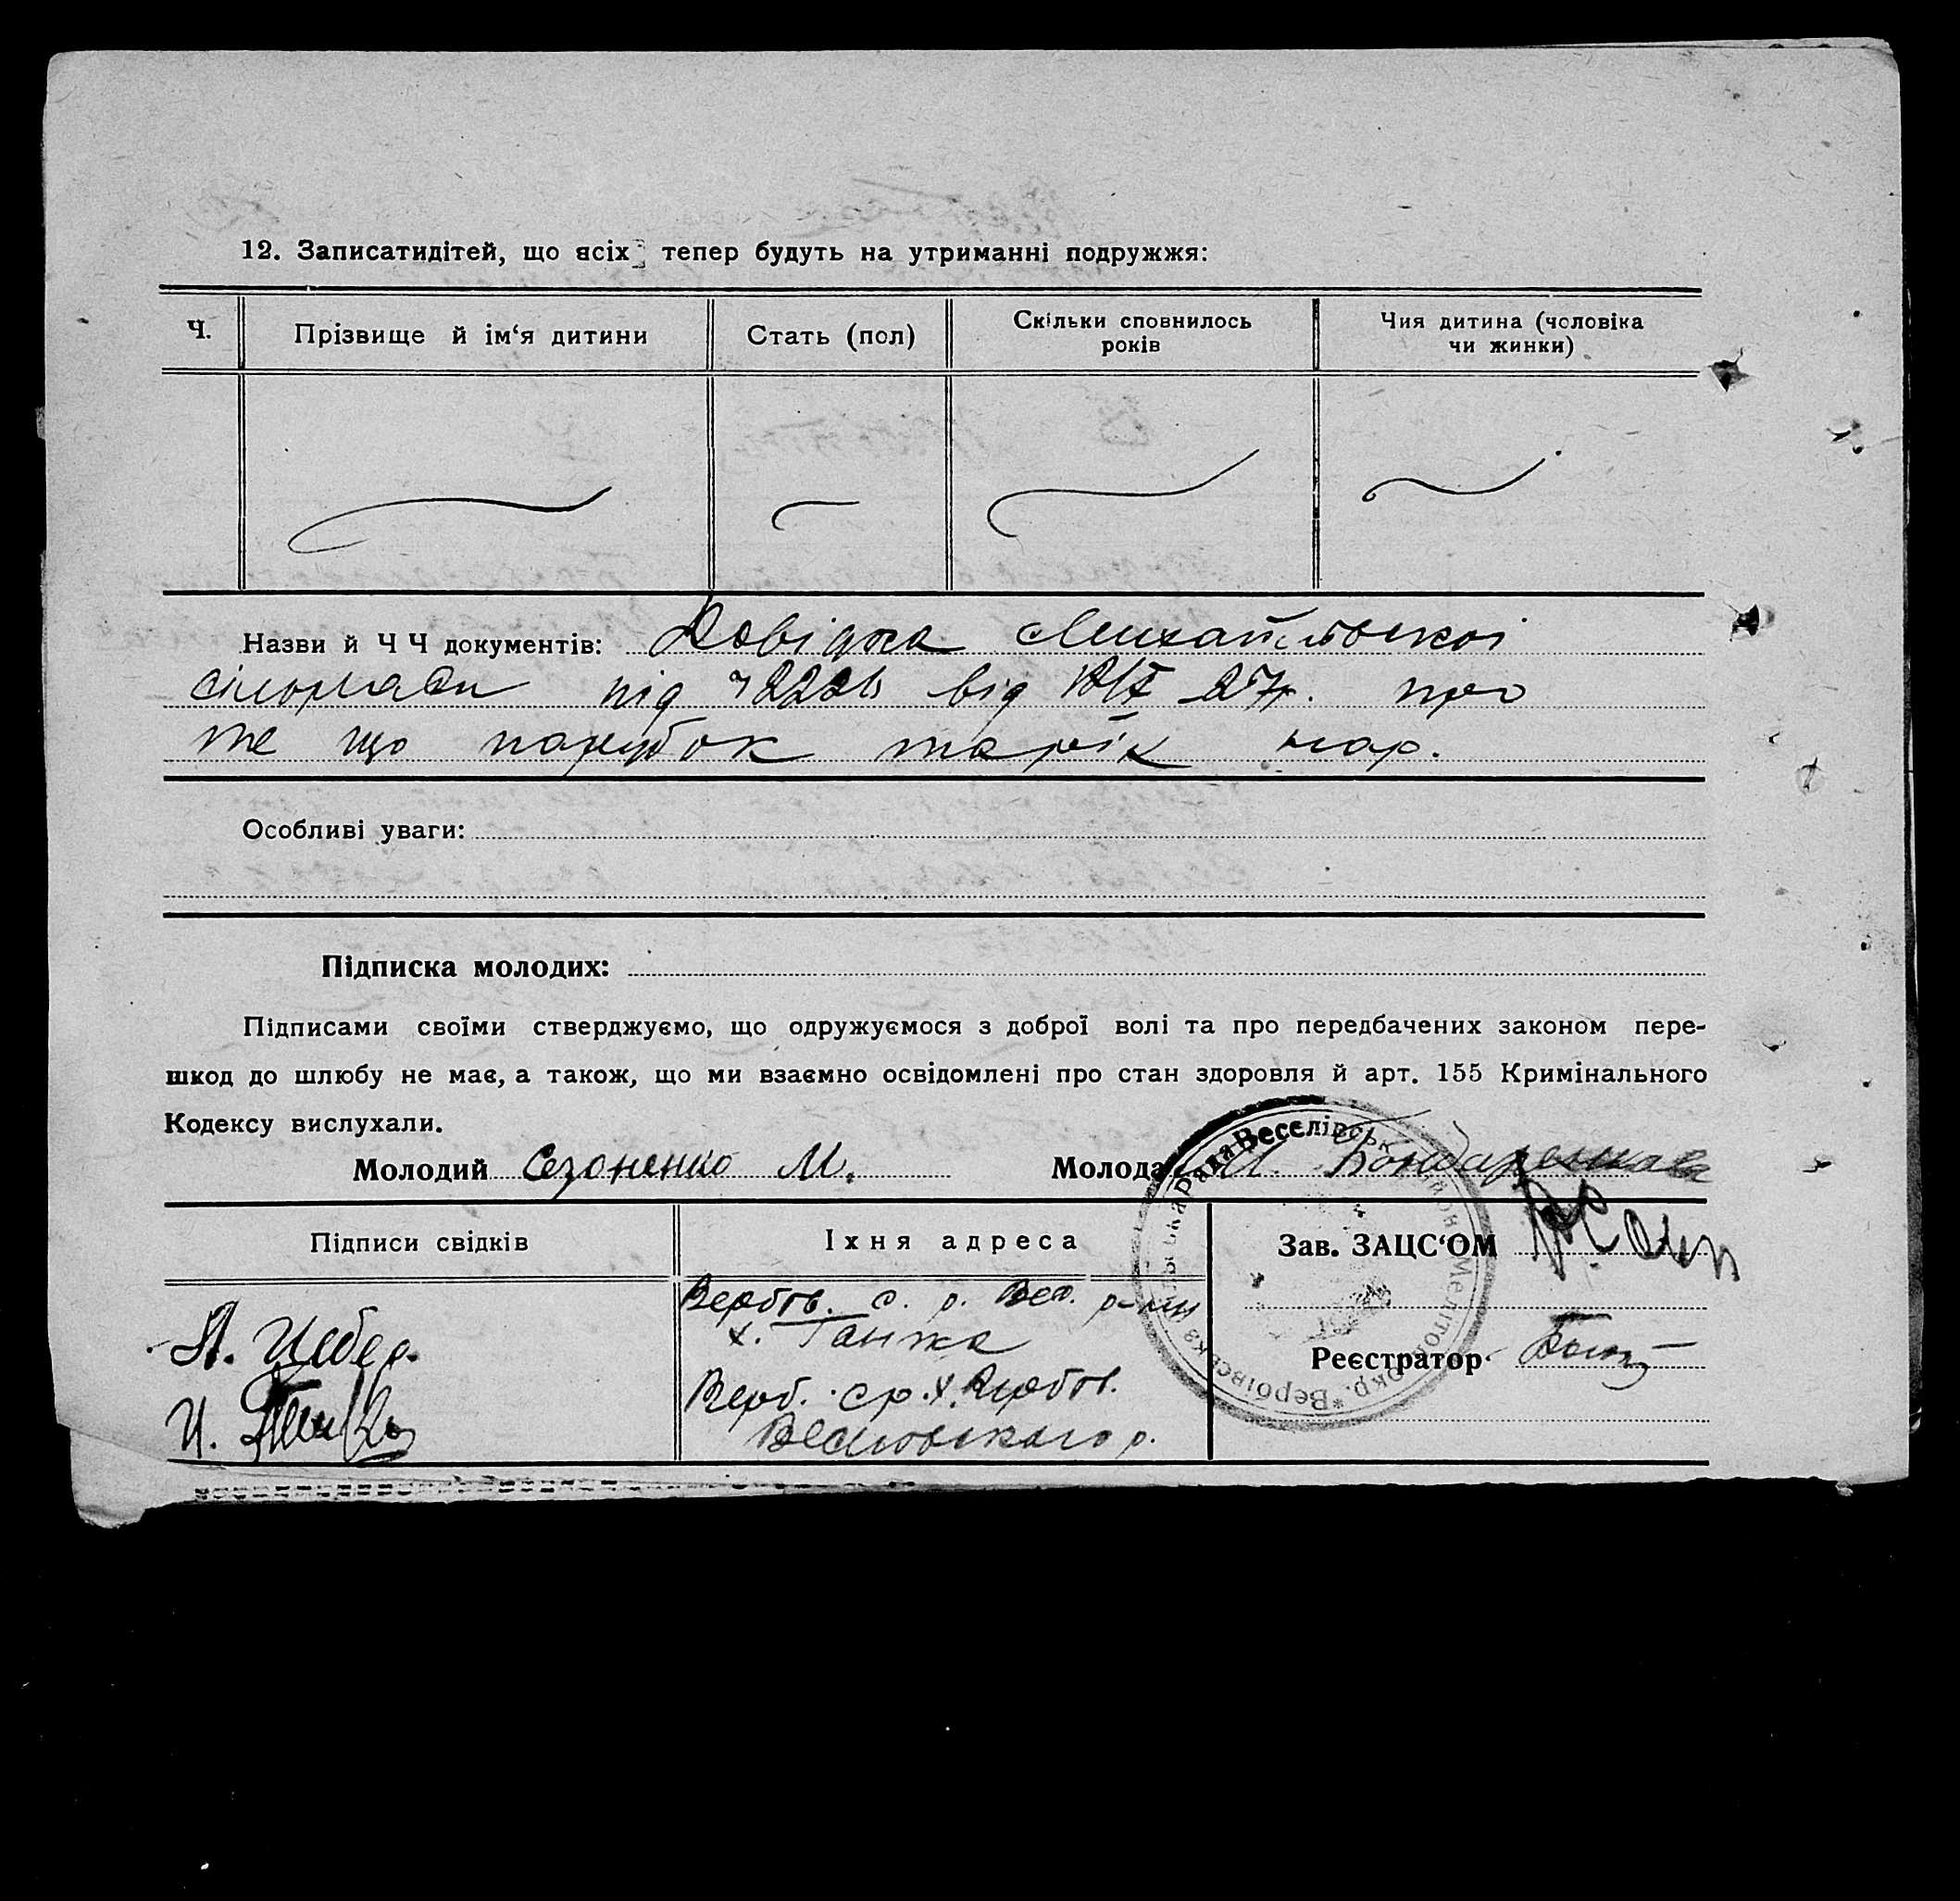 12. Записатидітей, що всіх тепер будуть на утриманні подружжя:
Ч. Прізвище й ім‘я дитини Стать (пол) Скільки сповнилось років Чия дитина (чоловіка чи жинки)
Назви й Ч Ч документів: Довідка Михайлівської
сільради під від 27р. про
те що парубок нар.
Особливі уваги:
Підписка молодих:
Підписами своїми стверджуємо, що одружуємося з доброї волі та про передбачених законом пере-
шкод до шлюбу не має, а також, що ми взаємно освідомлені про стан здоровля й арт. 155 Кримінального
Кодексу вислухали.
Молодий Сезоненко М. Молода Бондаренкова
Підписи свідків Їхня адреса Зав. ЗАЦС‘ОМ
Вербов. с. р. Вес. р-ну
х. Ганжа
Реєстратор
Верб. с.р. х. Вербов.
Веселовского р.